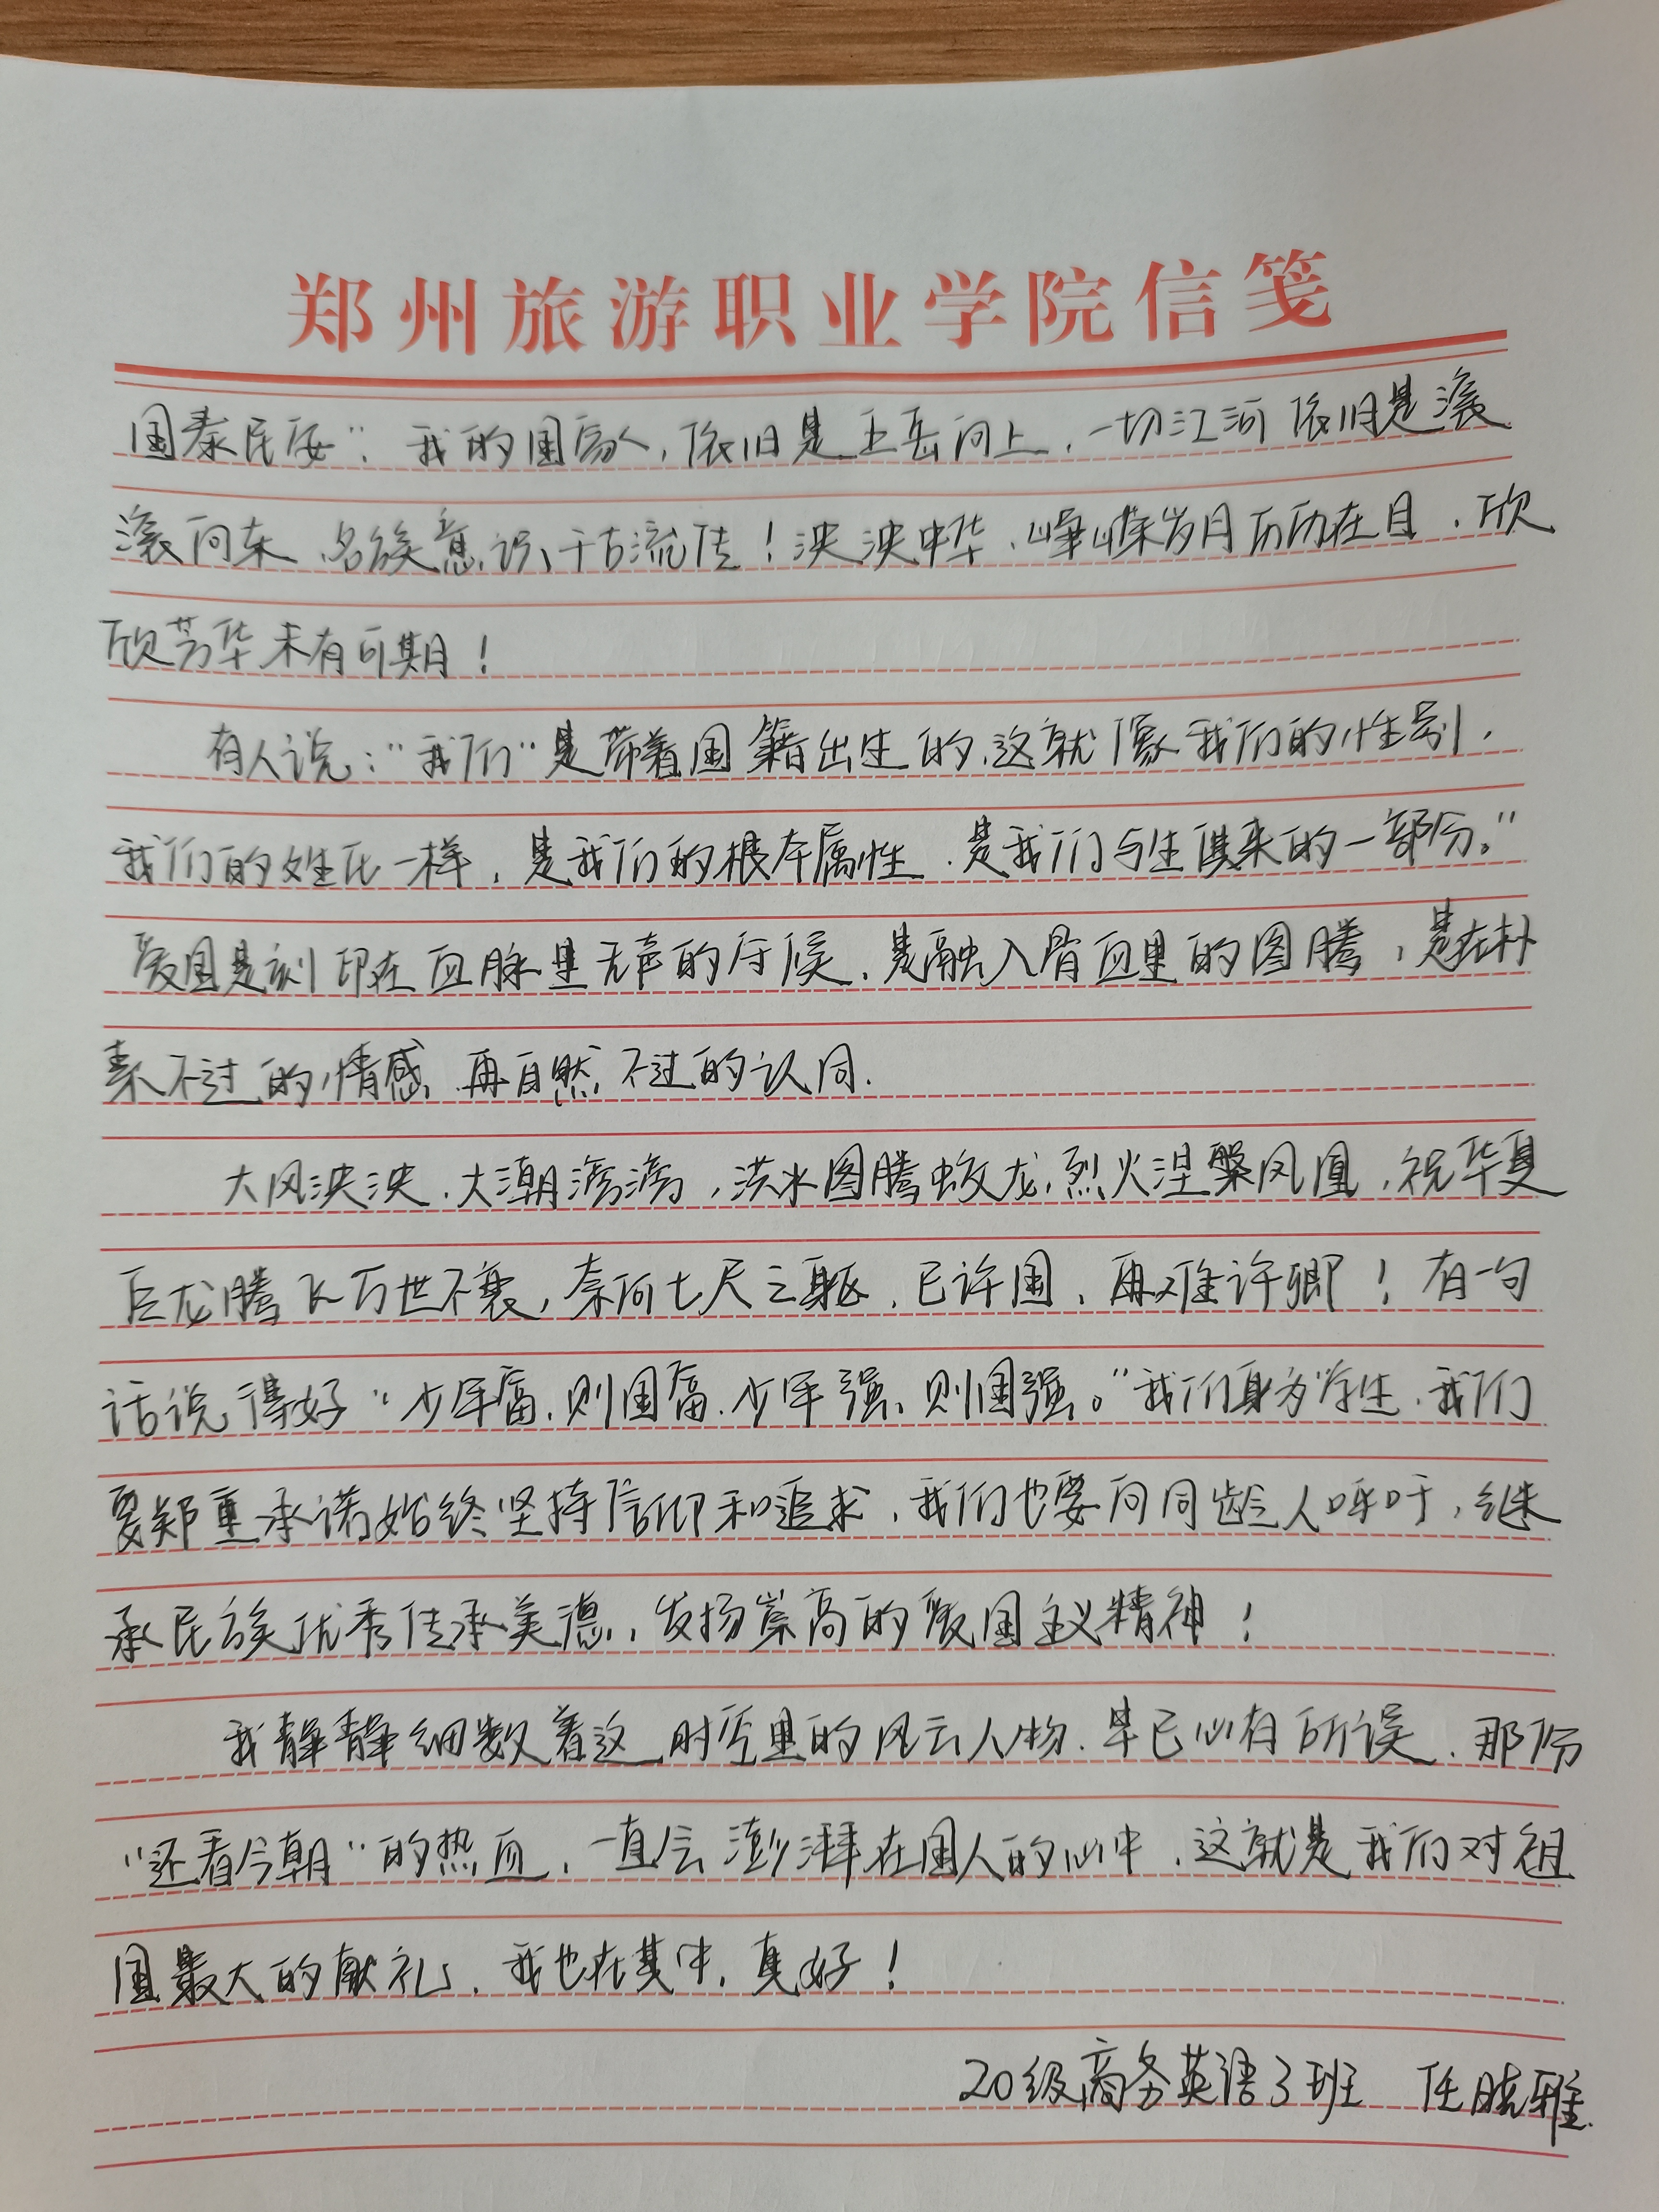 郑州旅游职业学院信笺
国泰民安"。我的国家，依旧是五岳向上，一切江河依旧是滚
滚向东，名族意识、千古流传！泱泱中华，峥嵘岁月历历在目，欣
欣芳华未有可期！
有人说："我们"是带着国籍出生的，这就像我们的性别，
我们的姓氏一样，是我们的根本属性，是我们与生俱来的一部分。"
爱国是刻印在血脉里无声的守候，是融入骨血里的图腾，是在朴
素不过的情感，再自然不过的认同.
大风泱泱，大潮滂滂，洪水图腾蛟龙，烈火涅槃凤凰，祝华夏
巨龙腾飞万世不衰，奈何七尺之躯，已许国，再难许卿！有一句
话说得好"少年富，则国富，少年强，则国强。"我们身为学生，我们
要郑重承诺始终坚持信仰和追求，我们也要向同龄人呼吁，继
承民族优秀传承美德，发扬崇高的爱国主义精神！
我静静细数着这时空里的风云人物，早已心有所误，那份
"还看今朝"的热血，一直会澎湃在国人的心中，这就是我们对祖
国最大的献礼，我也在其中，真好！
20级商务英语3班 任晓雅